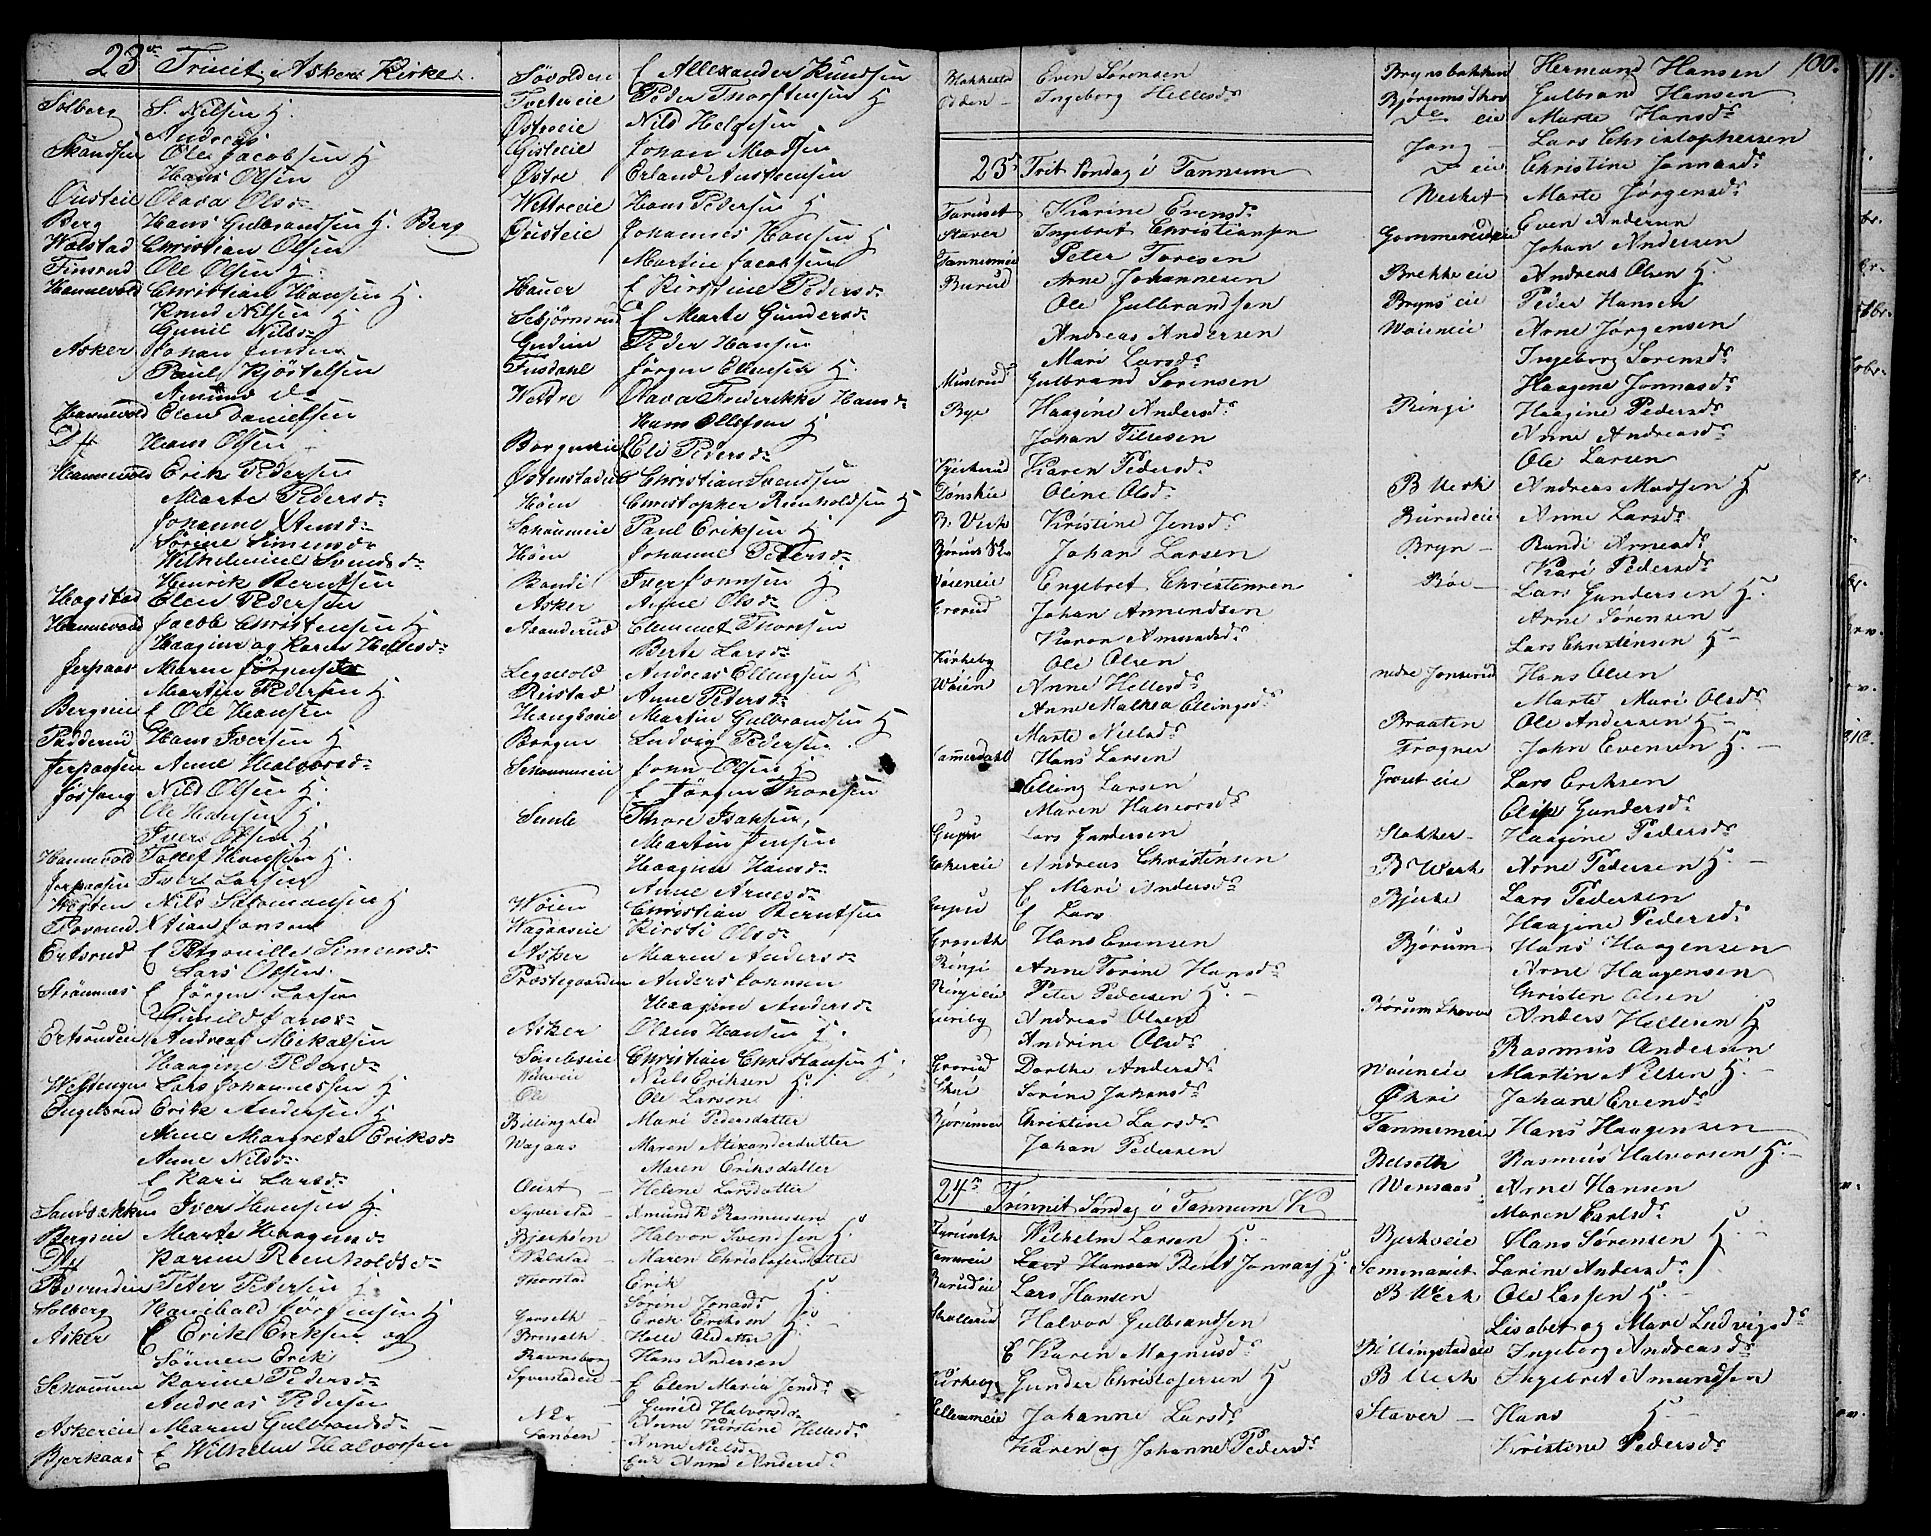 23de Trinit. Asker Kirke.
Solberg S. Nilsen H.
Andreas
Skandsen Ole Jacobsen H
Hans Olsen
Ousteie Olava Olsd.
Berg Hans Gulbrandsen H. Berg
Wolstad Christian Olsen
Finsrud Ole Olsen H.
Hannevold Christian Hansen H.
Knud Nilsen H
Gunil Nilsd.
Asker Johan Jensen
Paul Kjøstelsen
Amund do
Hannevold Elen Danielsen
Do Hans Olsen
Hannevold Erik Pedersen
Marte Pedersd.
Johanne Arnesd.
Sørine Simensd.
Wilhelmine Svendsd.
Henrik Berntsen
Hogstad Elen Pedersen
Hannevold Jacob Christensen H
Haagine og Karen Hellesd.
Jerpaas Maren Jørgensen
Martin Pedersen H
Bergseie E Ole Hansen
Padderud Hans Iversen H
Jerpaasen Anne Halvorsd.
Jøssong Nils Olsen H.
Ole Hansen H
Iver Olsen H
Hannevold Tollef Hansen H.
Jerpaasen Iver Larsen
Nils Salomonsen H
Stian Jonsen
Ertsrud E Petronille Simensd.
Lars Olsen
Strømnæs E Jørgen Larsen
Gunild Larsd.
Ertsrudeie Andreas Mickelsen
Haagine Pedersd.
Westengen Lars Johannessen H
Engelsrud Erik Andersen H
Anne Margrete Eriksd.
Anne Nilsd.
E Kari Larsd.
Sandbakken Iver Hansen H.
Bergseie Marte Haagensd.
Do Karen Reinholdsd.
Peter Petersen H
Solberg Hanibald Jørgensen H
Asker E Erik Eriksen og
Sønnen Erik
Karine Pedersd.
Andreas Pedersen
Askereie Maren Gulbrandsd.
Bjerkaas E Wilhelm Halvorsen
E Allexander Knudsen
Tvetereie Peder Thorstensen H
Østreeie Nils Helgesen
Gisleeie Johan Madsen
Østre Erland Austensen
Wettreeie Hans Pedersen H
Ousteie Johannes Hansen H
Martin Jacobsen
Hauer E Kirstine Pedersd.
Sebjørnsrud E Marte Gundersd.
Gudim Peder Hansen
Fusdahl Jørgen Ellevsen H.
Wettre Olava Frederikke Hansd.
Hans Ollefsen H
Borgeneie Eli Pedersd.
Østenstadeie Christian Svendsen
Høm Christopher Reinholdsen H
Schaumeie Paul Eriksen H
Høm Johanne Pedersd.
Bondi Iver Johnsen H
Asker Anne Olsd.
Asanderud Clemmet Thoresen
Berte Larsd.
Legevold Andreas Ellingsen H
Reistad Anne Petersd.
Haugboeie Martin Gulbrandsen H
Borgen Ludvig Pedersen
Schaumeie John Olsen H
E Jørgen Thoresen
Semle Thore Isaksen,
Martin Jensen
Haagine Hansd.
Anne Arnesd.
Wøien Christian Berntsen
Wogaaseie Kirsti Olsd.
Asker Maren Andersd.
Præstegaarden Anders Johnsen
Haagine Andersd.
Asker Olaus Hansen H.
Sembseie Christian Christiansen H.
Niels Eriksen H.
Ole Ole Larsen
Billingstad Mari Pedersdatter
Wogaas Maren Alixandersdatter
Maren Eriksdatter
Helene Larsdatter
Syverstad Amund Rasmussen
Bjerkden Halvor Svendsen H.
Wolstad Maren Christofersdatter
Thorstad Erik H.
Sørine Jonasd.
Erik Eriksen H.
Helle Olsdatter
Ravnsborg Hans Andersen
Syverstadeie E Elen Maria Jensd.
Gunild Halvorsd.
Nes Anne Kirstine Hellesd.
Sandøen Anne Nielsd.
Enk Anne Andersd.
100.
Blakkestad Even Sørensen
Odden Ingeborg Hellesd.
23s Trit Søndag i Tannum
Toruset Karine Evensd.
Staver Ingebret Christiansen
Tannumeie Peter Toresen
Burud Arne Johannesen
Ole Gulbrandsen
Andreas Andersen
Mari Larsd.
Musterud Gulbrand Sørensen
Bye Haagine Andersd.
Johan Tillesen
Karen Pedersd.
Dønskie Oline Olsd.
B. Verk Kristine Jensd.
Johan Larsen
Woieneie Engebret Christensen
Grorud Johan Ammundsen
Karen Amundsd.
Kirkeby Ole Olsen
Woien Anne Hellesd.
Anne Mathea Ellingsd.
Marte Nielsd.
Hammerdahl Hans Larsen
Elling Larsen
Maren Halvorsd.
Gupu Lars Gundersen
Andreas Christensen
E Mari Andersd.
Gupu E Lars
Groseth Hans Evensen
Ringi Anne Torine Hansd.
Ringieie Peter Pedersen H.
Kirkeby Andreas Olsen
Andrine Olsd.
Grorud Dorthe Andersd.
Skui Sørine Johansd.
Bjørumeie Christine Larsd.
Johan Pedersen
24n Trinnit Søndag i Tannum K
Wilhelm Larsen H.
Tanumeie Lars Hansen Bent Jonnasen H.
Burudeie Lars Hansen
Halvor Gulbrandsen
E Karen Magnusd.
Kirkeby Gunder Christofersen H
Johanne Larsd.
Karen og Johanne Pedersd.
Brynsbakken Hermand Hansen
Bjørumsskov Gulbrand Hansen
Do eie Marte Hansd.
Jong Lars Christophersen
Do eie Christine Jonnasd.
Neskeit Marte Jørgensd.
Gommerudeie Even Andersen
Johan Andersen
Brekkeeie Andreas Olsen H.
Bryns eie Peder Hansen
Woieneie Arne Jørgensen
Ingeborg Sørensd.
Haagine Jonnasd.
Ringi Haagine Pedersd.
Anne Andreasd.
Ole Larsen
B Werk Andreas Madsen H
Burudeie Anne Larsd.
Bryn Randi Arnesd.
Kari Pedersd.
Bøe Lars Gundersen H.
Arne Sørensen
Lars Christensen H
nedre Jonsrud Hans Olsen
Marte Mari Olsd.
Braaten Ole Andersen H
Frogner John Evensen H.
Groset eie Lars Eriksen
Gundersd.
Stokker Haagine Pedersd.
B Werk Arne Pedersen H.
Bjerke Lars Pedersen
Haagine Pedersd.
Bjørum Hans Haagensen
Arne Haagensen
Christen Olsen
Bjørum Skoven Anders Hellesen H
Rasmus Andersen
Woieneie Martin Nilsen H.
Økri Johane Evensd.
Tannumeie Hans Haagensen
Belseth Rasmus Halvorsen H.
Wensaas Arne Hansen
Maren Carlsd.
Bjerkeeie Hans Sørensen H
Semmannet Larine Andersd.
B Werk Ole Larsen H.
Lisabet og Mari Ludvigsd.
Billingstadeie Ingeborg Andreasd.
B Werk Ingebret Amundsen
Staver Hans H.
Kristine Pedersd.